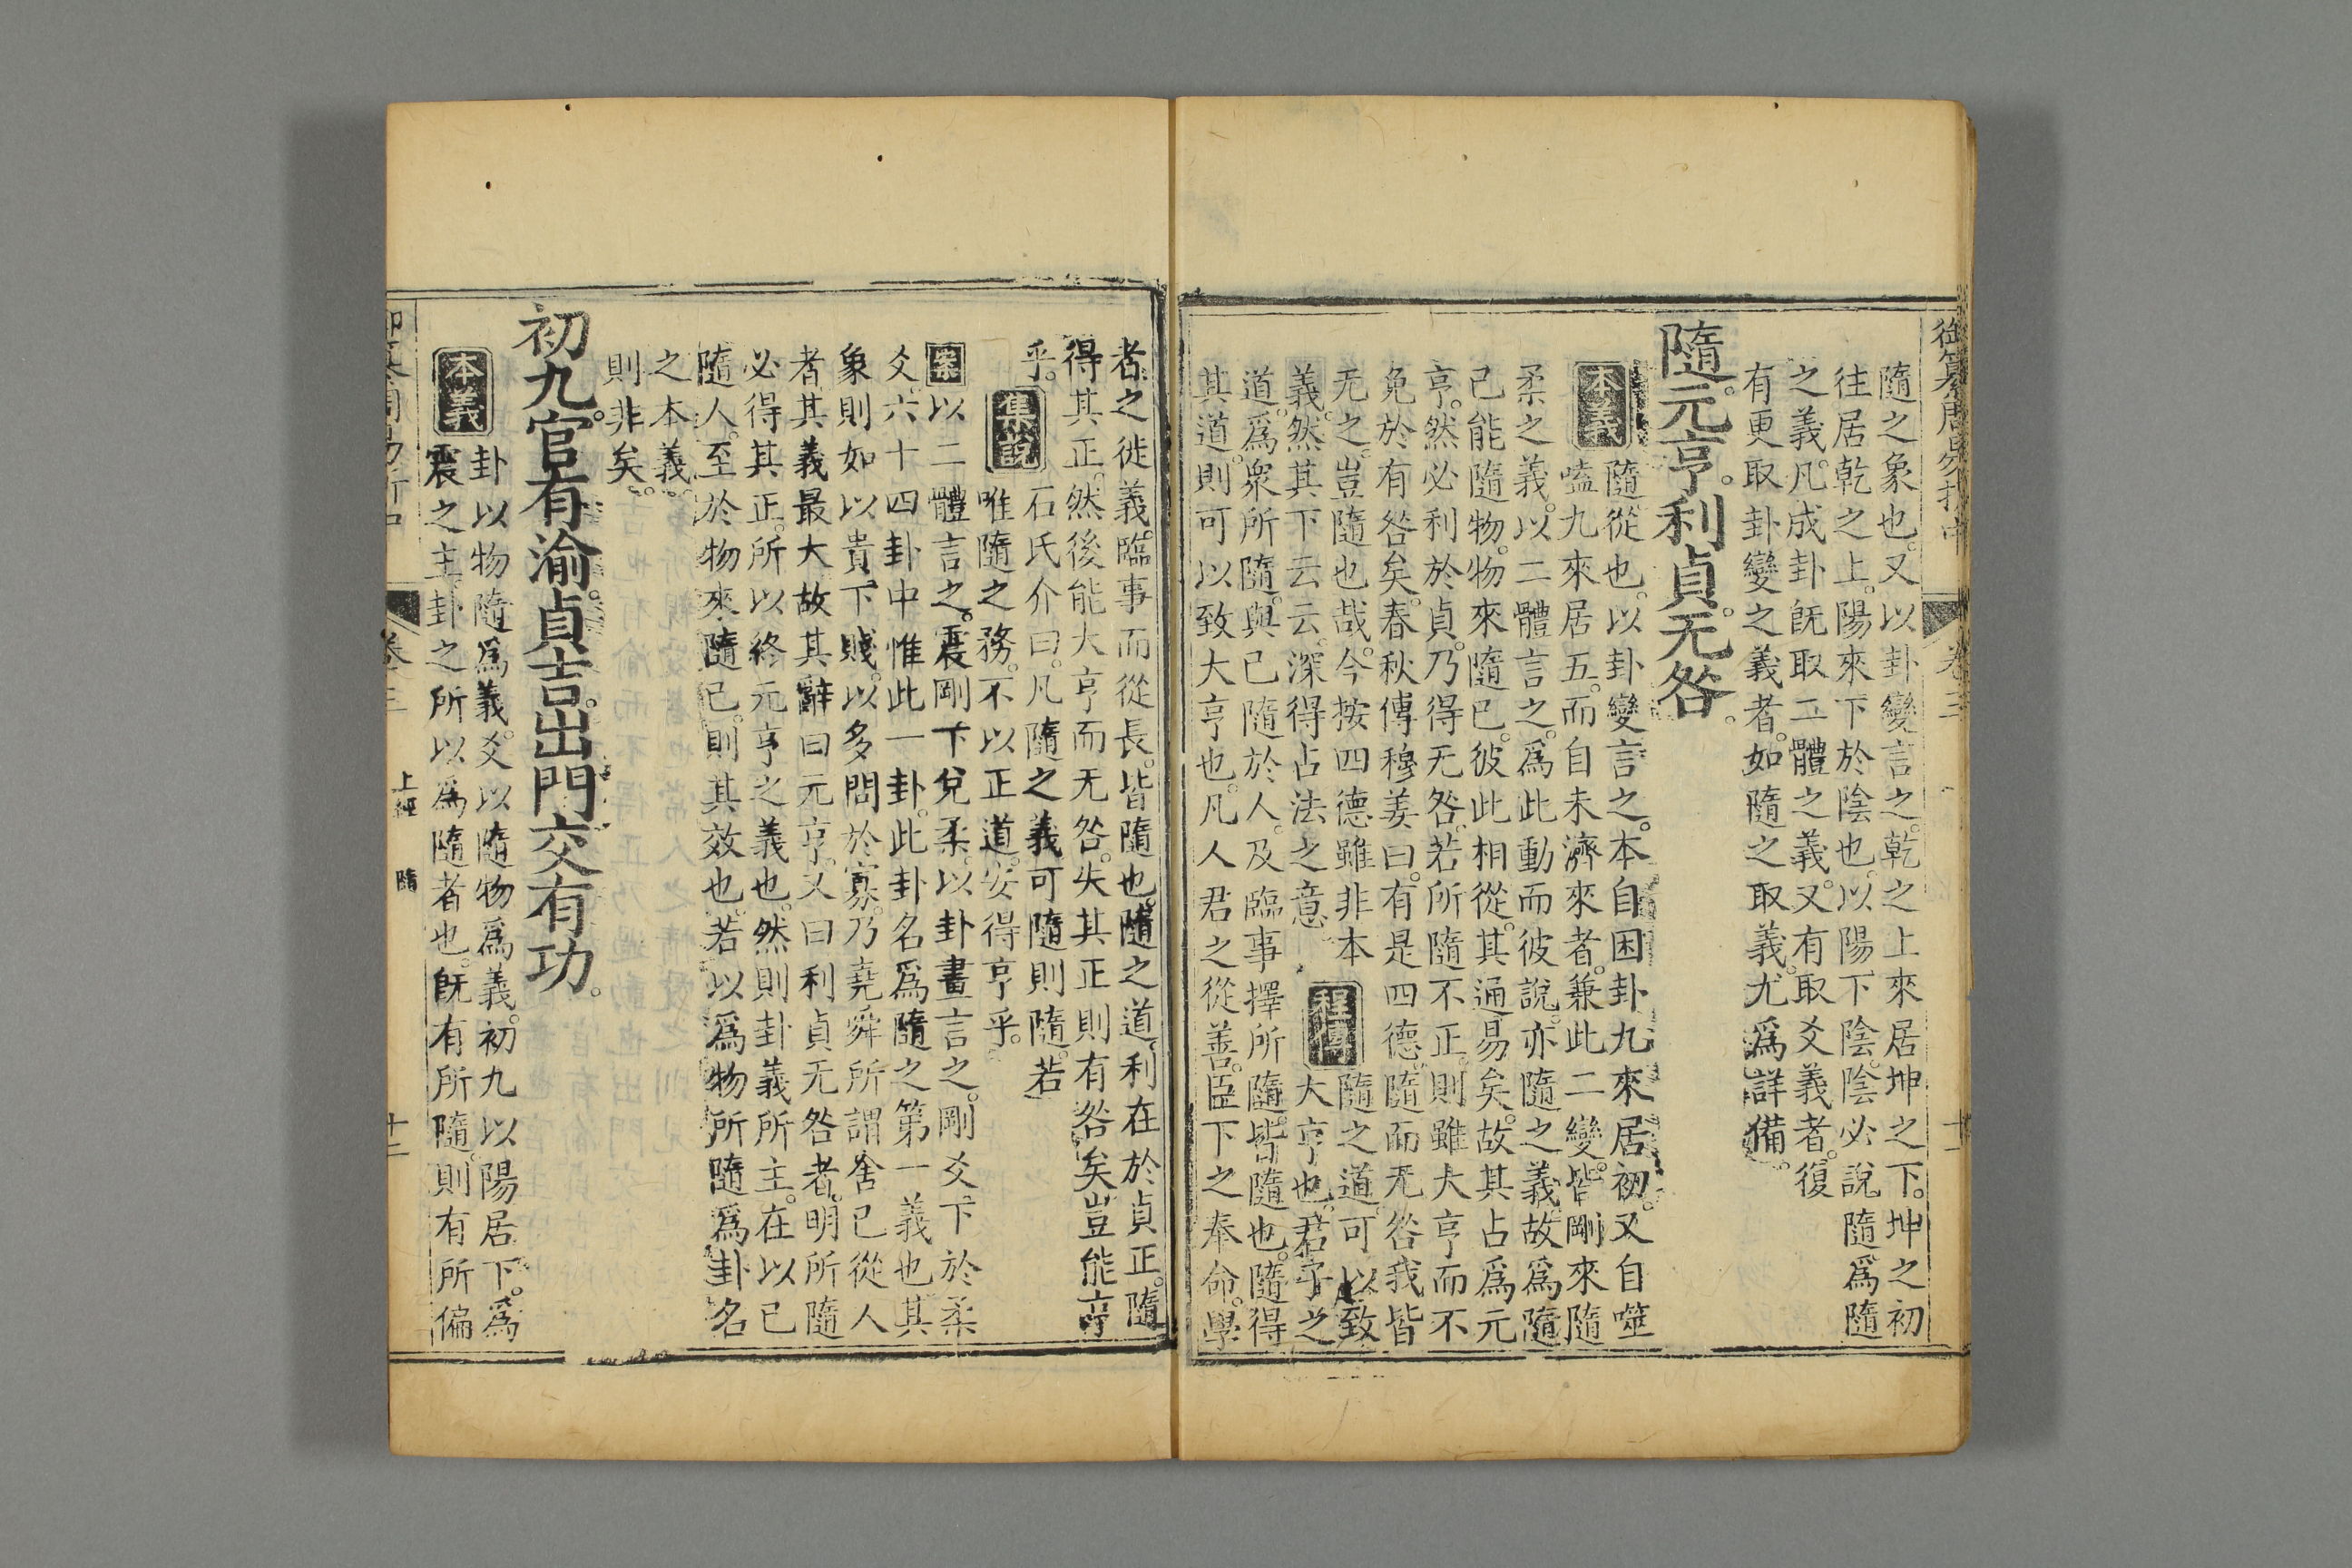 御纂周易折中
卷三
十一
隨之象也。又以卦變言之。乾之上來居坤之下。坤之初
往居乾之上。陽來下於陰也。以陽下陰。陰必說隨爲隨
之義。凡成卦旣取二體之義。又有取爻義者。復
有更取卦變之義者。如隨之取義。尤爲詳備。
隨。元亨。利貞。无咎。
本義
隨從也。以卦變言之。本自困卦九來居初。又自噬
嗑九來居五。而自未濟來者。兼此二變。皆剛來隨
柔之義。以二體言之。爲此動而彼說。亦隨之義。故爲隨
己能隨物。物來隨己。彼此相從。其通易矣。故其占爲元
亨。然必利於貞。乃得无咎。若所隨不正。則雖大亨而不
免於有咎矣。春秋傳穆姜曰。有是四德。隨而无咎我皆
无之。豈隨也哉。今按四德雖非本
義。然其下云云。深得占法之意
程傳
隨之道。可以致
大亨也。君子之
道。爲衆所隨。與己隨於人。及臨事擇所隨。皆隨也。隨得
其道。則可以致大亨也。凡人君之從善。臣下之奉命。學
者之徙義。臨事而從長。皆隨也。隨之道。利在於貞正。隨
得其正。然後能大亨而无咎。失其正則有咎矣豈能亨
乎。
集說
石氏介曰。凡隨之義可隨則隨。若
唯隨之務。不以正道。安得亨乎。
案以二體言之。震剛下兌柔。以卦畫言之。剛爻下於柔
爻。六十四卦中惟此一卦。此卦名爲隨之第一義也其
象則如以貴下賤。以多問於寡。乃堯舜所謂舍己從人
者。其義最大故其辭曰元亨。又曰利貞无咎者。明所隨
必得其正。所以終元亨之義也。然則卦義所主。在以己
隨人。至於物來隨己。則其效也。若以爲物所隨爲卦名
之本義。
則非矣。
初九。官有渝。貞吉。出門交有功。
本義
卦以物隨爲義。爻以隨物爲義。初九以陽居下。爲
震之主。卦之所以爲隨者也。旣有所隨。則有所偏
卷三
上經
隨
十二